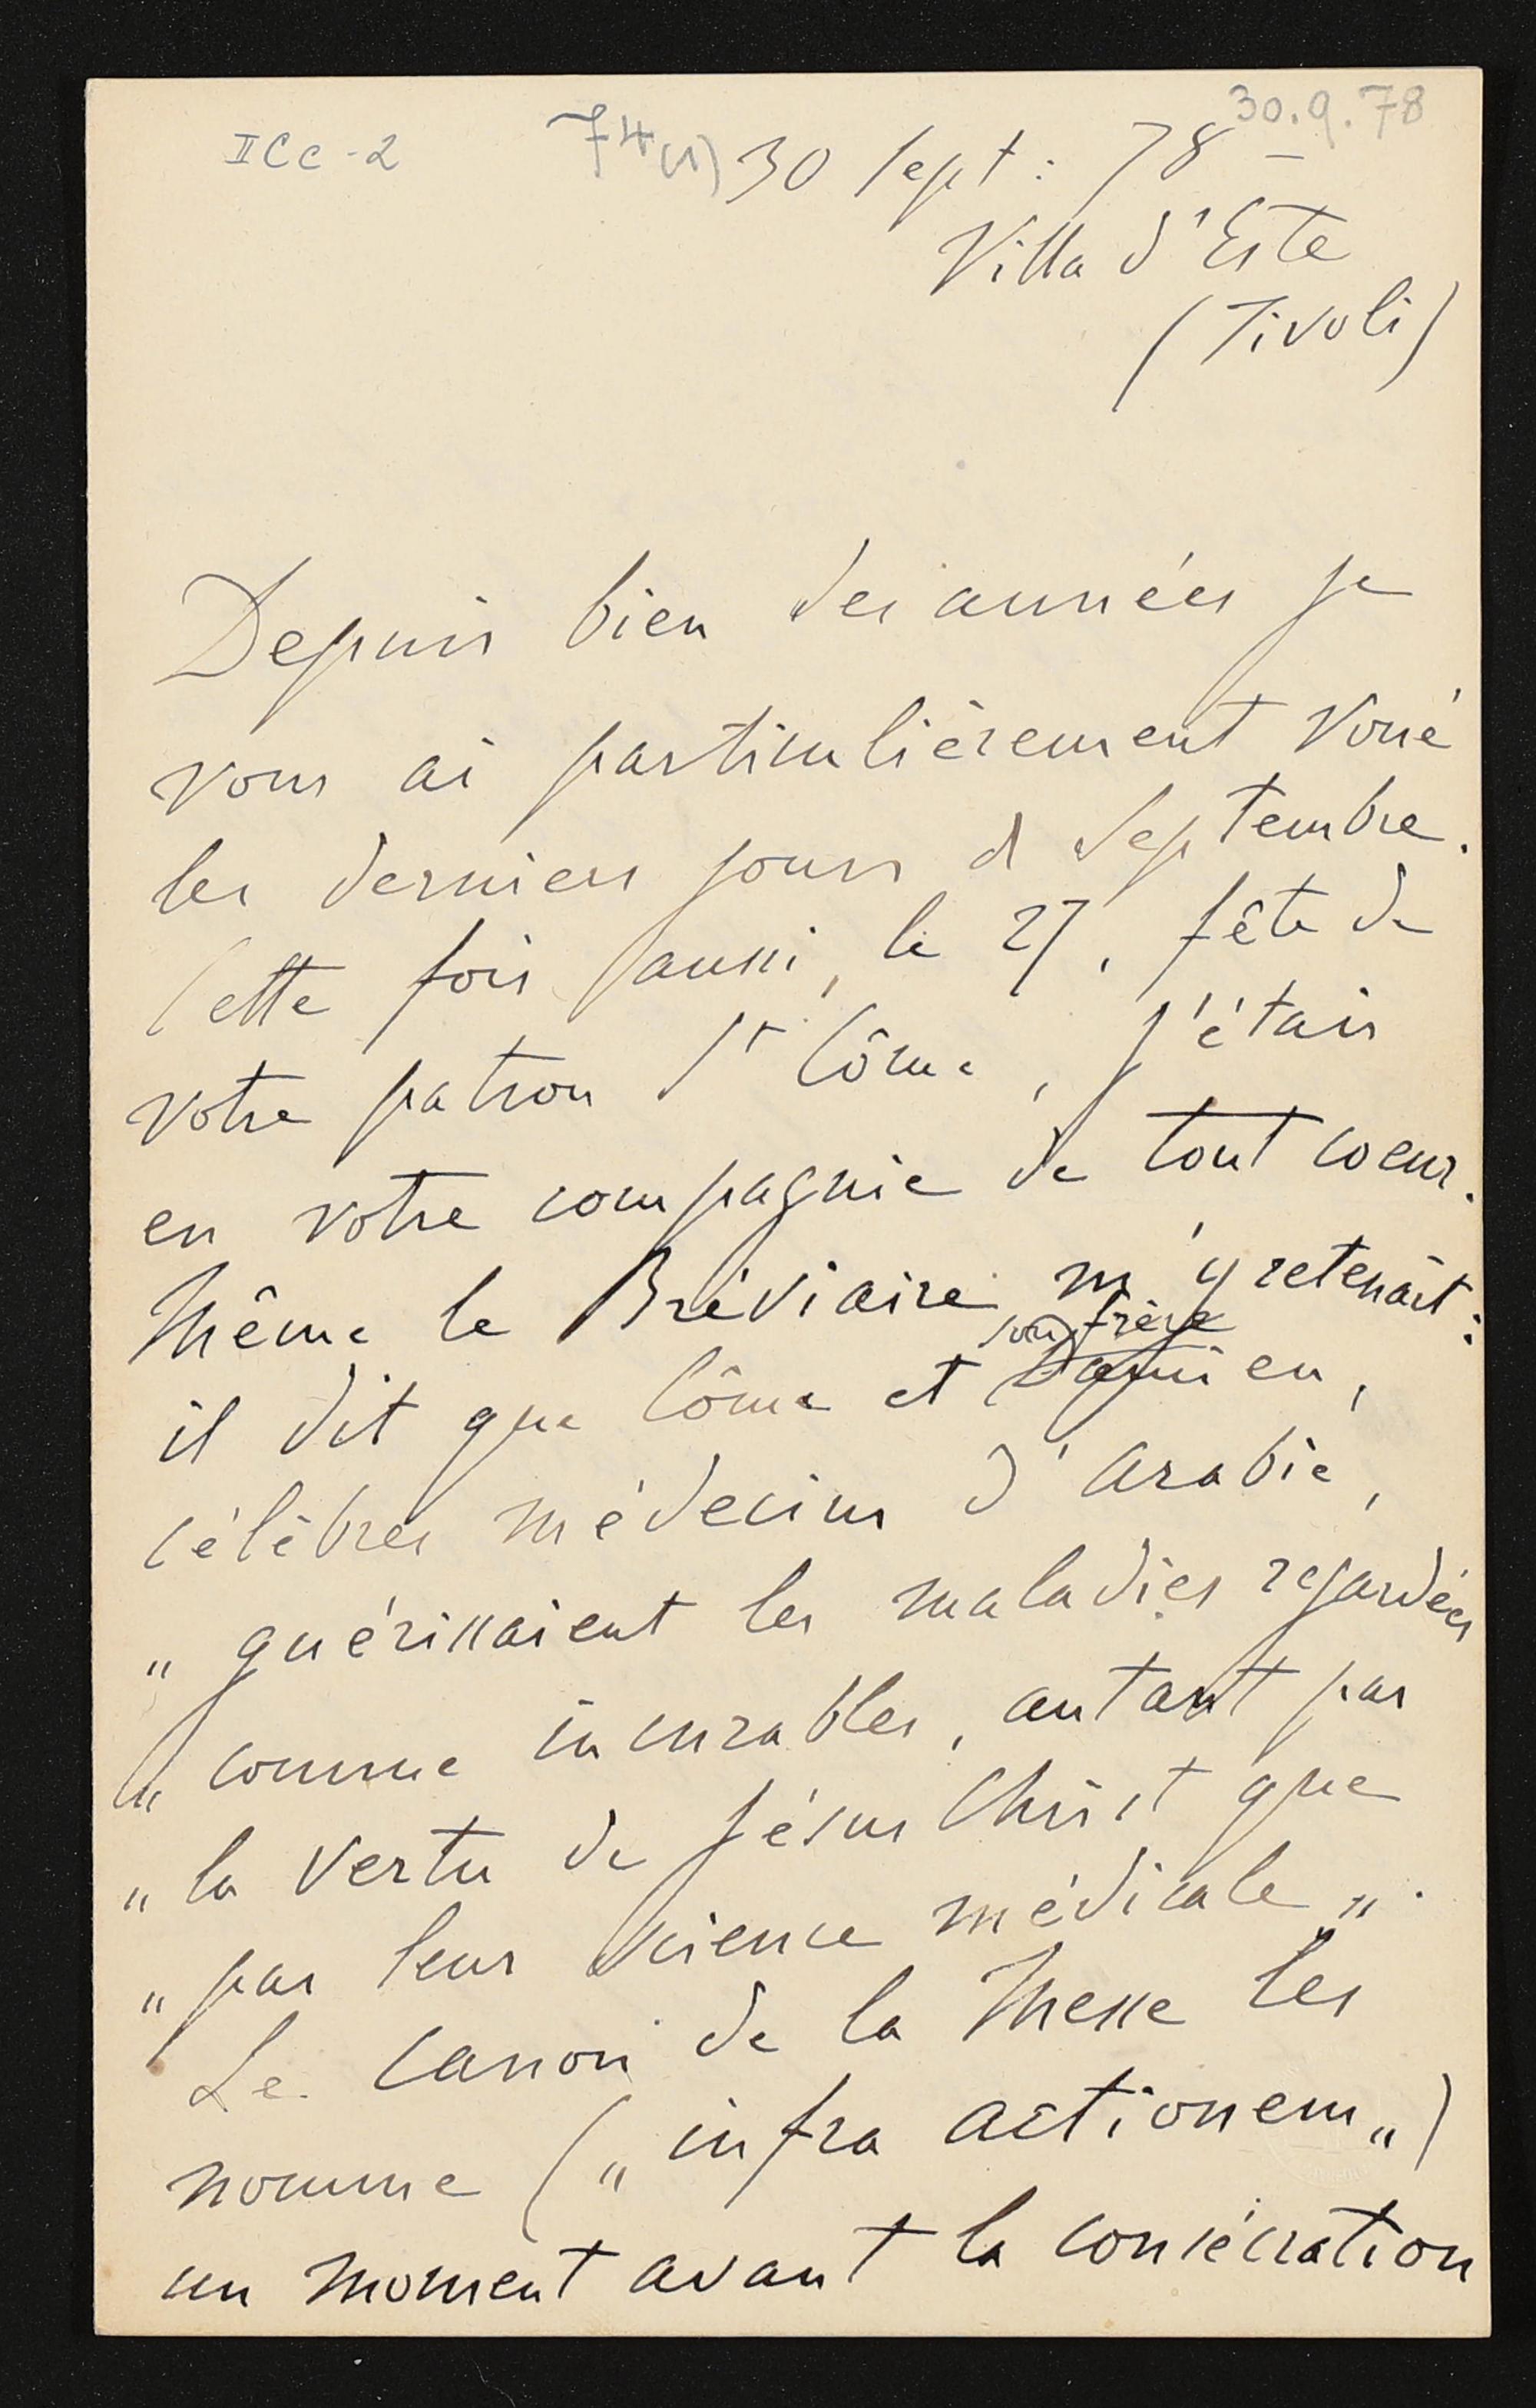 30.9.78
IICc-2
74(1) 30 Sept: 78
Villa d'Este
(Tivoli)
Depuis bien des années je
vous ai particulièrement voué
les derniers jours d Septembre.
Cette fois aussi, le 27, fête de
votre patron St Côme, j'étais
en votre compagnie de tout coeur.
Même le Bréviaire m'y retenait:
son frère
il dit que Côme et Damien,
célèbres médecins d'Arabie,
„ guérissaient les maladies regardées
„ comme incurables, autant par
„ la vertu de Jésus Christ que
„ par leur science médicale „.
Le Canon de la Messe les
nomme („ infra actionem „)
un moment avant la consécration